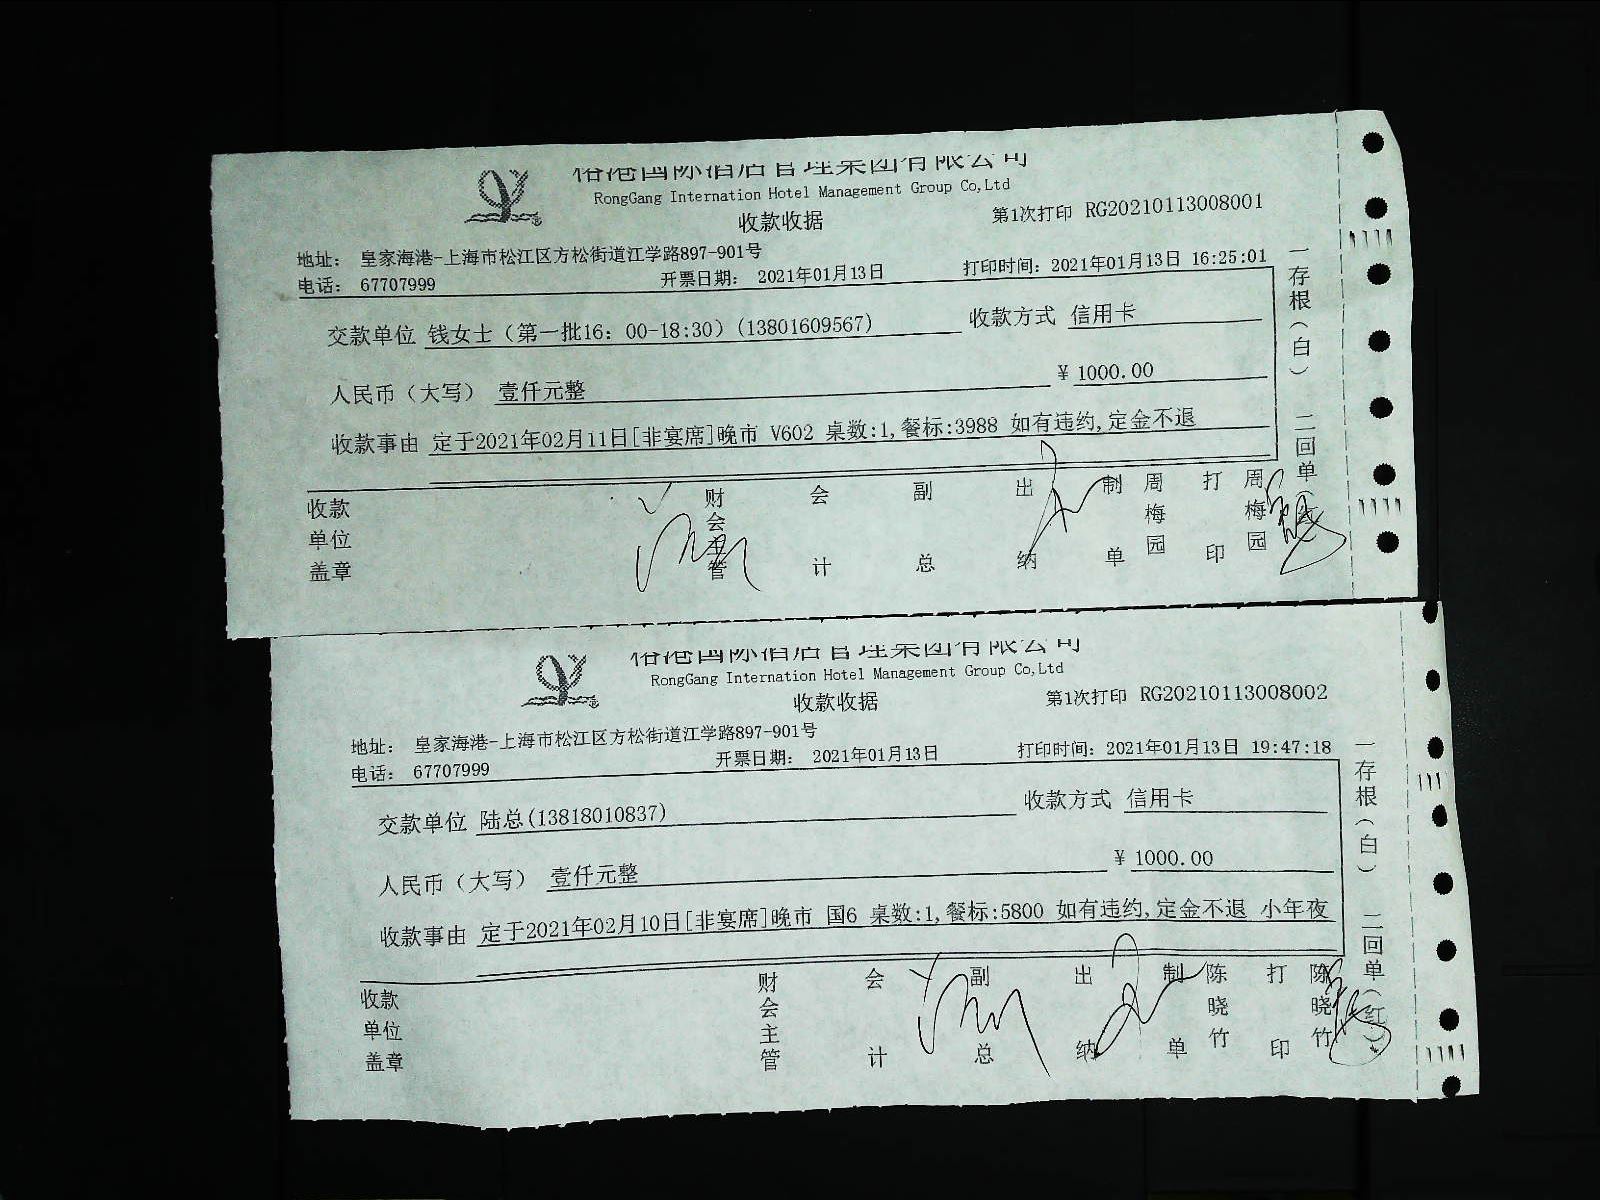 裕港国际酒店管理集团有限公司
RongGang Internation Hotel Management Group Co,Ltd
收款收据
第1次打印 RG20210113008001
地址： 皇家海港-上海市松江区方松街道江学路897-901号
电话： 67707999
开票日期： 2021年01月13日
打印时间：2021年01月13日 16:25:01
交款单位 钱女士（第一批16：00-18:30）(13801609567)
收款方式 信用卡
人民币（大写） 壹仟元整
¥ 1000.00
收款事由 定于2021年02月11日[非宴席]晚市 V602 桌数:1,餐标:3988 如有违约,定金不退
收款单位盖章
财会主管
会计
副总
出纳
制单 周梅园
打印 周梅园
一存根（白） 二回单（红）
裕港国际酒店管理集团有限公司
RongGang Internation Hotel Management Group Co,Ltd
收款收据
第1次打印 RG20210113008002
地址： 皇家海港-上海市松江区方松街道江学路897-901号
电话： 67707999
开票日期： 2021年01月13日
打印时间：2021年01月13日 19:47:18
交款单位 陆总(13818010837)
收款方式 信用卡
人民币（大写） 壹仟元整
¥ 1000.00
收款事由 定于2021年02月10日[非宴席]晚市 国6 桌数:1,餐标:5800 如有违约,定金不退 小年夜
收款单位盖章
财会主管
会计
副总
出纳
制单 陈晓竹
打印 陈晓竹
一存根（白） 二回单（红）